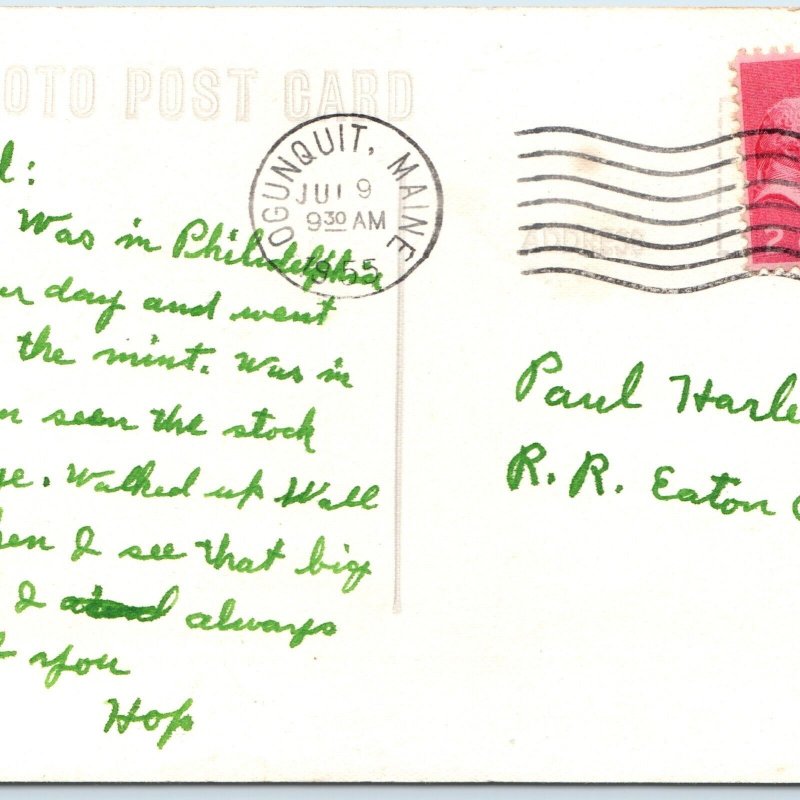 OTO POST CARD
OGUNQUIT, MAINE
JUL 9
9 30 AM
1955
ADDRESS
2
l:
Was in Philadelphia
ur day and went
the mint. Was in
seen the stock
ge. Walked up Wall
hen I see that big
I always
you
Hop
Paul Harle
R. R. Eaton